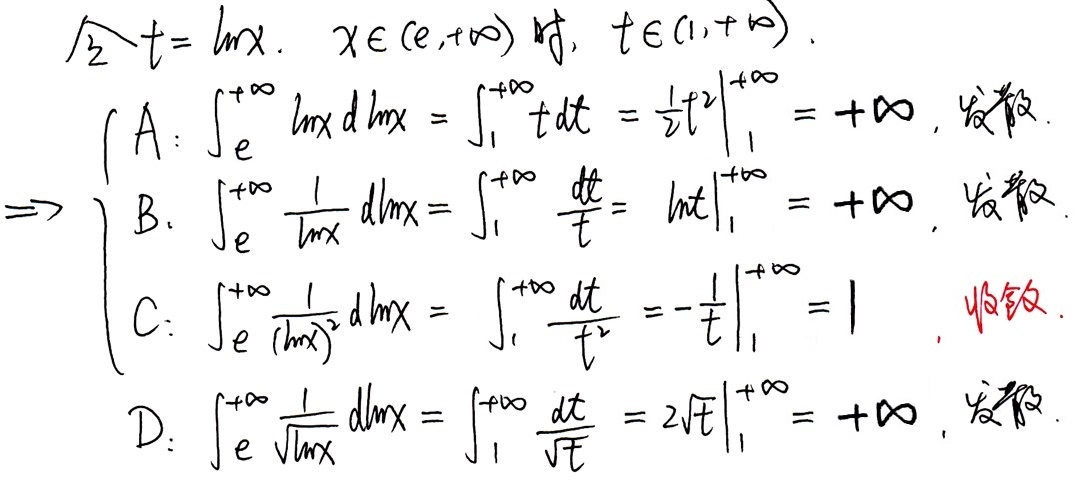 令 t = lnx. x∈(e,+∞) 时, t∈(1,+∞).
A: ∫_e^{+∞} lnx dlnx = ∫_1^{+∞} t dt = ½t²|_1^{+∞} = +∞, 发散.
⇒ B. ∫_e^{+∞} \frac{1}{lnx} dlnx = ∫_1^{+∞} \frac{dt}{t} = lnt|_1^{+∞} = +∞, 发散.
C: ∫_e^{+∞} \frac{1}{(lnx)²} dlnx = ∫_1^{+∞} \frac{dt}{t²} = -\frac{1}{t}|_1^{+∞} = 1, 收敛.
D: ∫_e^{+∞} \frac{1}{\sqrt{lnx}} dlnx = ∫_1^{+∞} \frac{dt}{\sqrt{t}} = 2\sqrt{t}|_1^{+∞} = +∞, 发散.